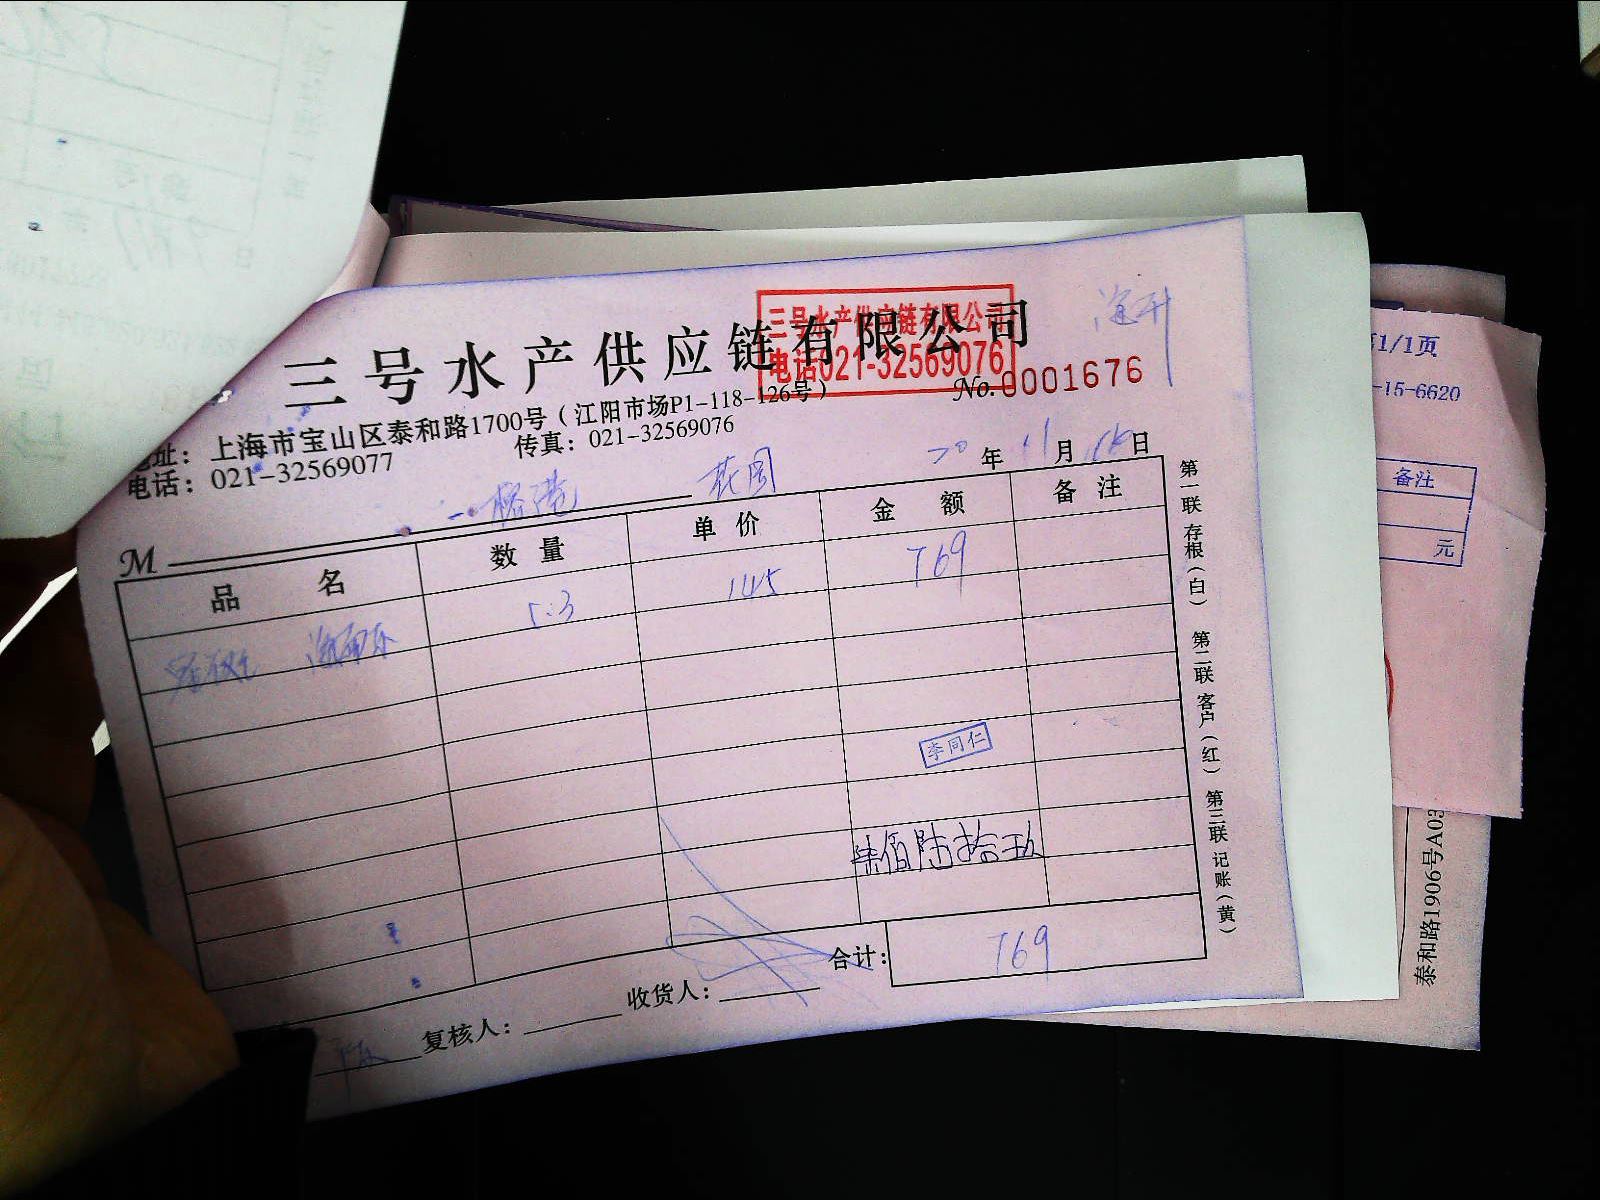 三号水产供应链有限公司
三号水产供应链有限公司
电话021-32569076
No. 0001676
地址：上海市宝山区泰和路1700号（江阳市场P1-118-126号）
电话：021-32569077 传真：021-32569076
20年11月 日
M
品名 数量 单价 金额 备注
5.3 145 769
李同仁
柒佰陆拾玖
合计： 769
复核人： 收货人：
第一联 存根（白） 第二联 客户（红） 第三联 记账（黄）
1/1页
-15-6620
备注
元
泰和路1906号A03